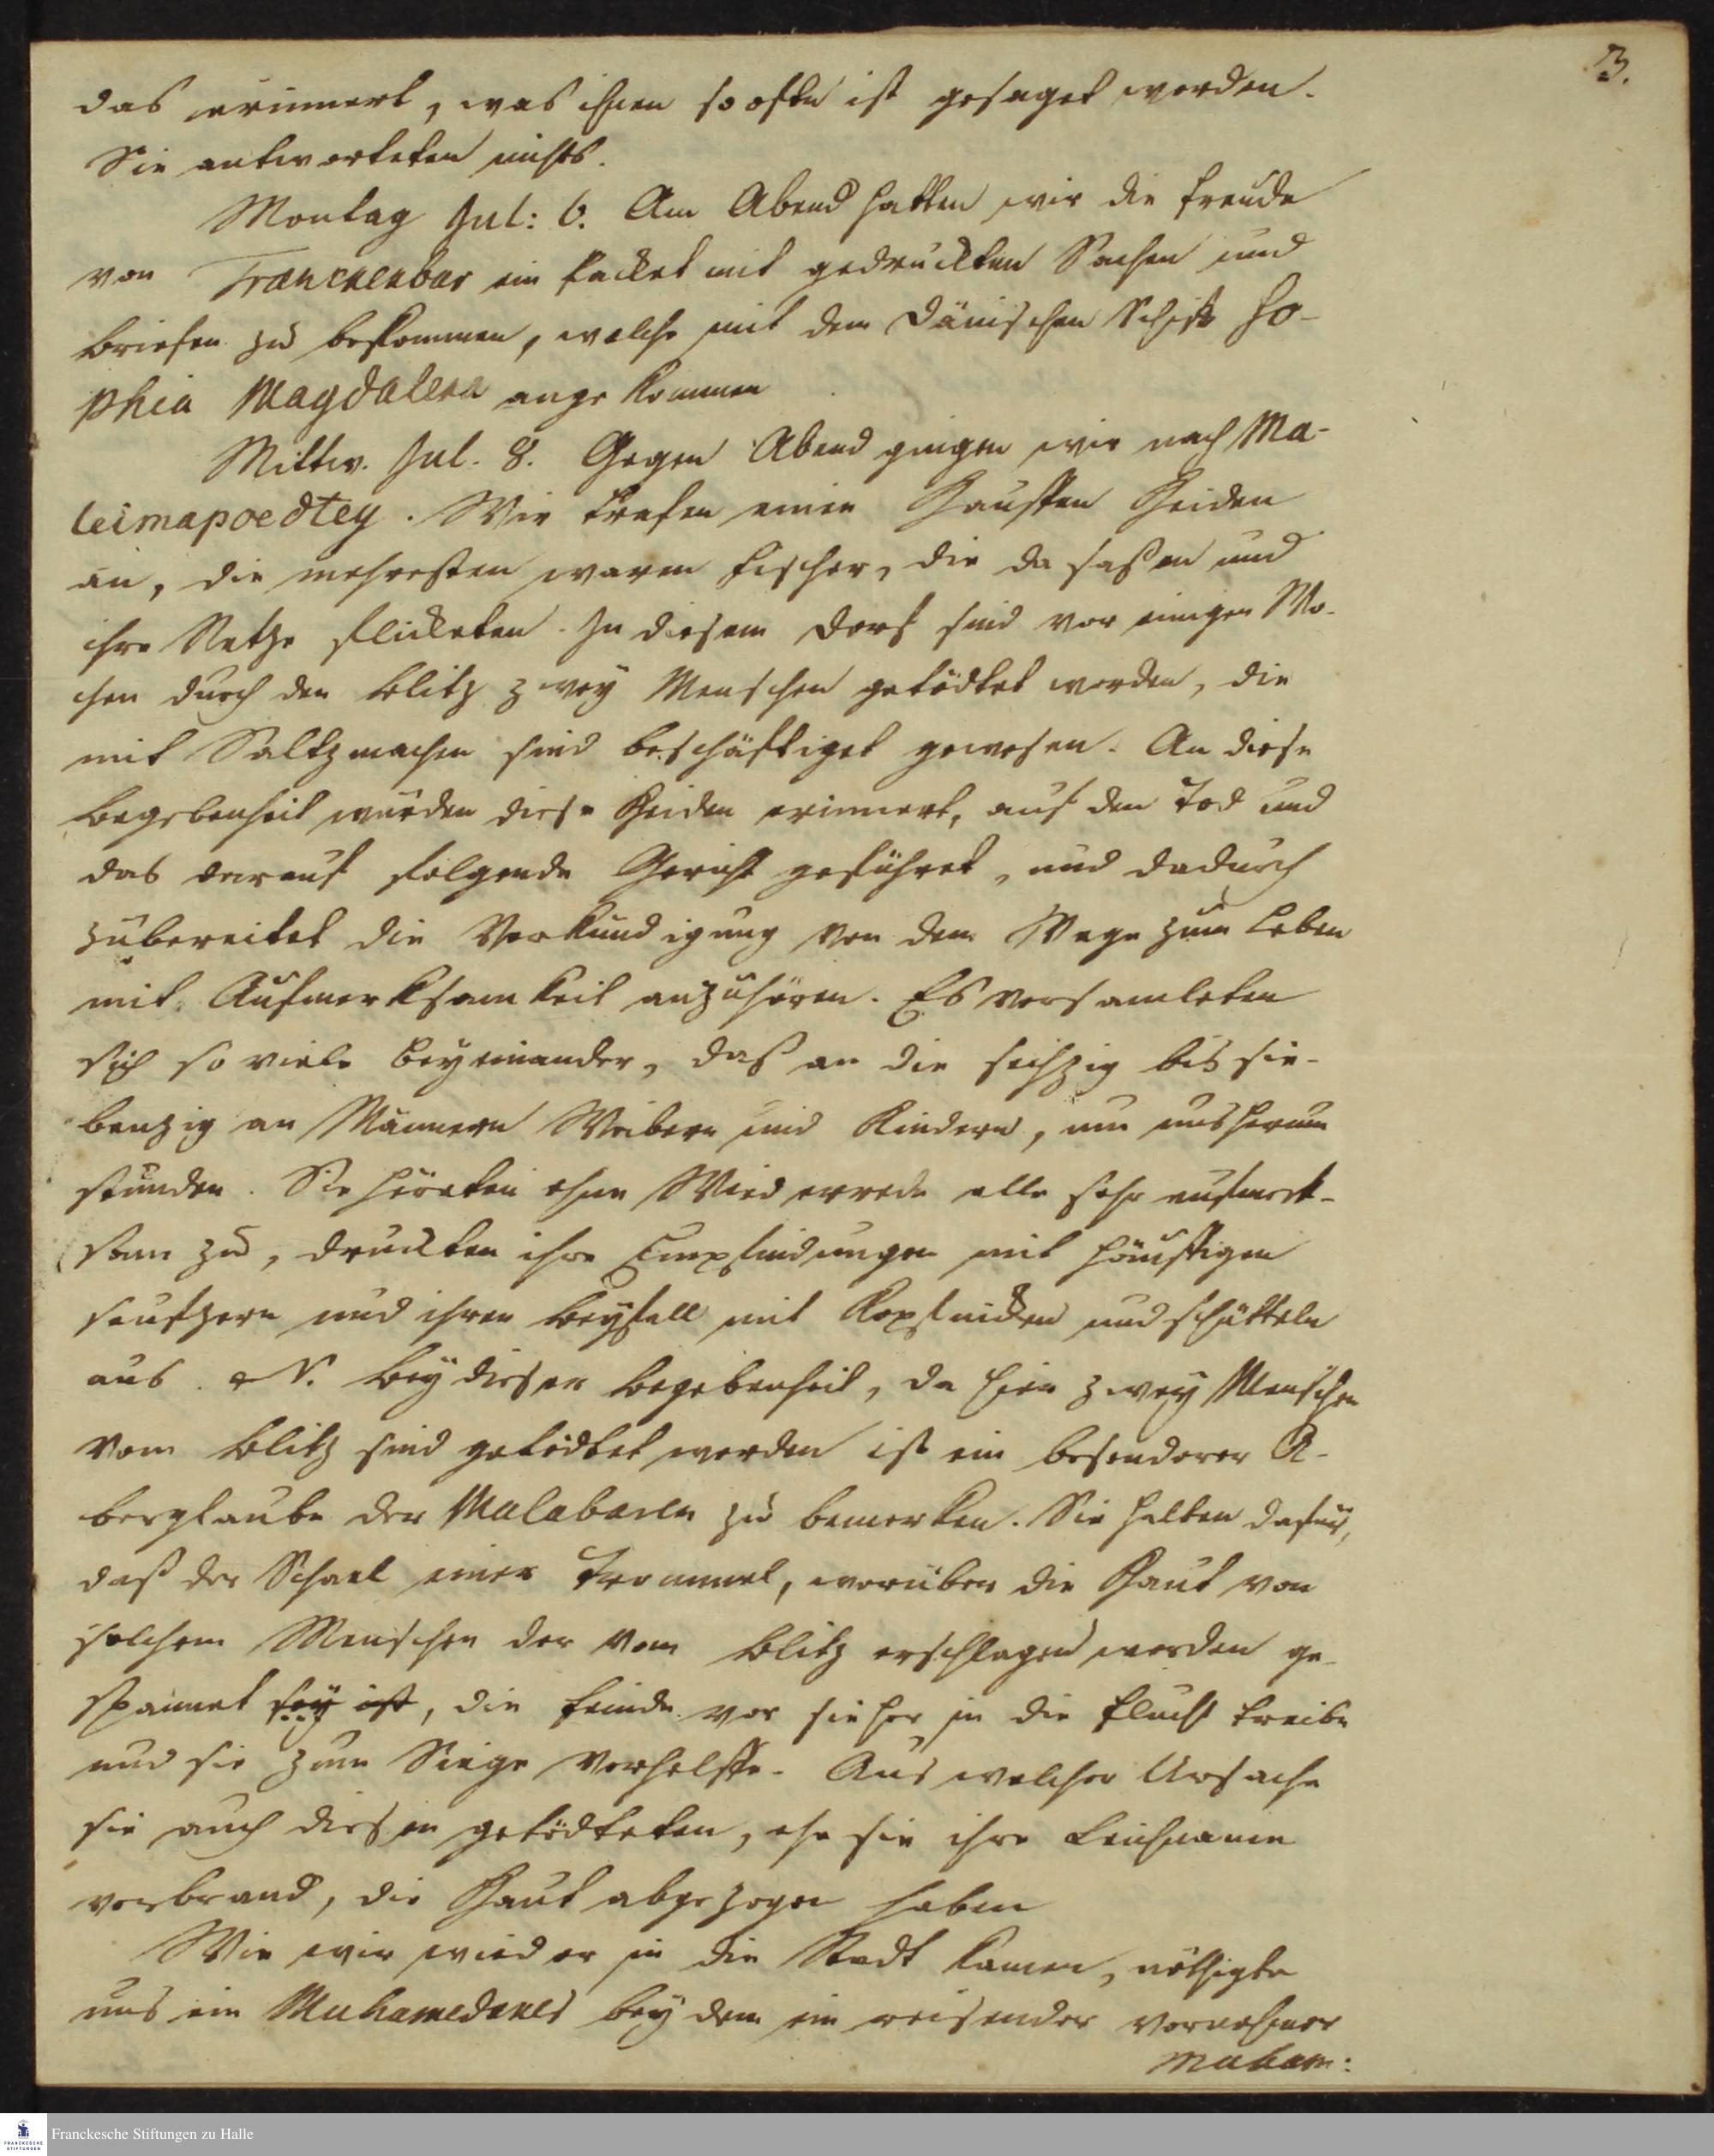 3.
das erinnert, was ihnen so oft ist gesaget worden.
Sie antworteten nichts.
Montag Jul: 6. Am Abend hatten wir die Freude
von Tranckenbar ein Packet mit gedruckten Sachen und
Briefen zu bekommen, welche mit dem Dänischen Schiffe So-
phia Magdalena angekommen
Mittw. Jul. 8. Gegen Abend gingen wir nach Ma-
leimapoedtey. Wir trafen einen Hauffen Heiden
an, die mehresten waren Fischer, die da saßen und
ihre Netze flickten. In diesem Dorf sind vor einigen Wo-
chen durch den Blitz zwey Menschen getödtet worden, die
mit Saltzmachen sind beschäftiget gewesen. An diese
Begebenheit wurden diese Heiden erinnert, auf den Tod und
das darauf folgende Gericht geführet, und dadurch
zubereitet die Verkündigung von dem Wege zum Leben
mit Aufmerksamkeit anzuhören. Es versamleten
sich so viele beyeinander, daß an die sechzig bis sie-
benzig an Männern Weibern und Kindern, um uns herum
stunden. Sie höreten ohne Wiederrede alle sehr aufmerk-
sam zu, druckten ihre Empfindungen mit häuffigen
seufzern und ihren Beyfall mit Kopfnicken und schütteln
aus. N. Bey dieser Begebenheit, da hier zwey Menschen
vom Blitz sind getödtet worden ist ein besonderer A-
berglaube der Malabaren zu bemerken. Sie halten dafür,
daß der Schael einer Trommel, worüber die Haut von
solchem Menschen der vom Blitz erschlagen worden ge-
spannet sey ist, die Feinde vor sie her in die Flucht treibe
und sie zum Siege verhelffe. Aus welcher Ursache
sie auch diesen getödteten, ehe sie ihre Leichname
verbrand, die Haut abgezogen haben
Wie wir wieder in die Stadt kamen, nöthigte
uns ein Muhamedaner bey dem ein reisender vornehmer
Muham:
Franckesche Stiftungen zu Halle
FRANCKESCHE
STIFTUNGEN